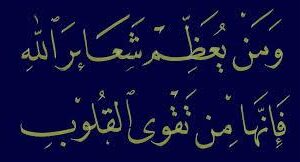 وَمَن يُعَظِّمْ شَعَـٰٓئِرَ ٱللَّهِ
فَإِنَّهَا مِن تَقْوَى ٱلْقُلُوبِ